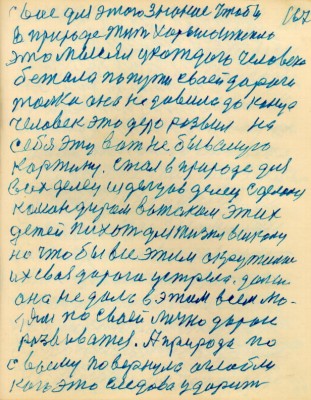 свое для этого знание чтобы 167
в природе жить хорошо можно
это мысли у каждого человека
бежала по пути своей дорога
только она не довила до конца
человек это дело развил на
себя эту вот не бывалую
картину. Стал в природе для
всех делец из дельцов делец сделался
командиром вот таком этих
детей пихот для жизни в школу
но чтобы все этим окружили
их своя дорога устрела. даль
она не даль в этом всем лю-
дям по своей лично дороге
развиватся. А природа по
своему повернула оглобли
кого это следова ударит